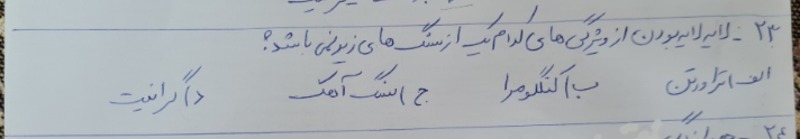 ۲۳- لایه لایه بودن از ویژگی های کدام یک از سنگ های زیر نمی باشد؟
الف) تراورتن ب) کنگلومرا ج) سنگ آهک د) گرانیت
۲۴-